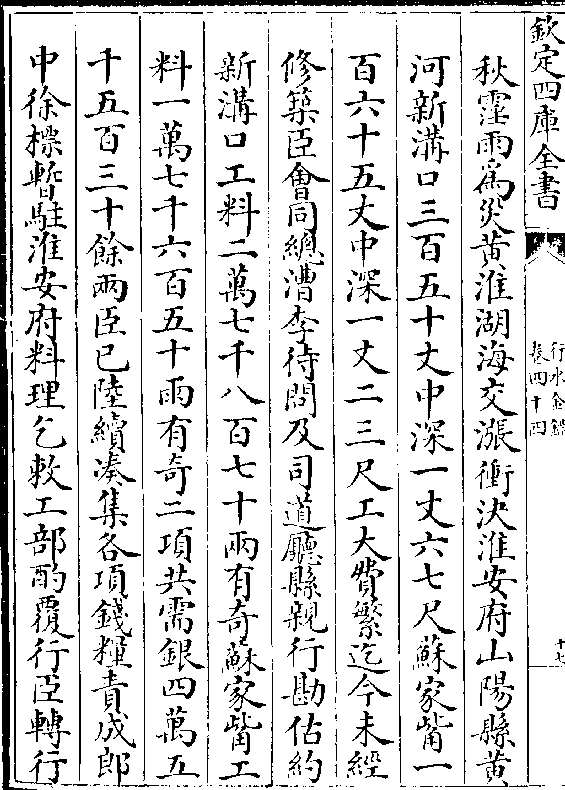 欽定四庫全書
行水金鑑
卷四十四
十七
秋霪雨為災黄淮湖海交漲衝決淮安府山陽縣黄
河新溝口三百五十丈中深一丈六七尺蘇家觜一
百六十五丈中深一丈二三尺工大費繁迄今未經
修築臣會同總漕李待問及司道廳縣親行勘估約
新溝口工料二萬七千八百七十兩有奇蘇家觜工
料一萬七千六百五十兩有奇二項共需銀四萬五
千五百三十餘兩臣已陸續凑集各項錢糧責成郎
中徐標暫駐淮安府料理乞敕工部酌覆行臣轉行